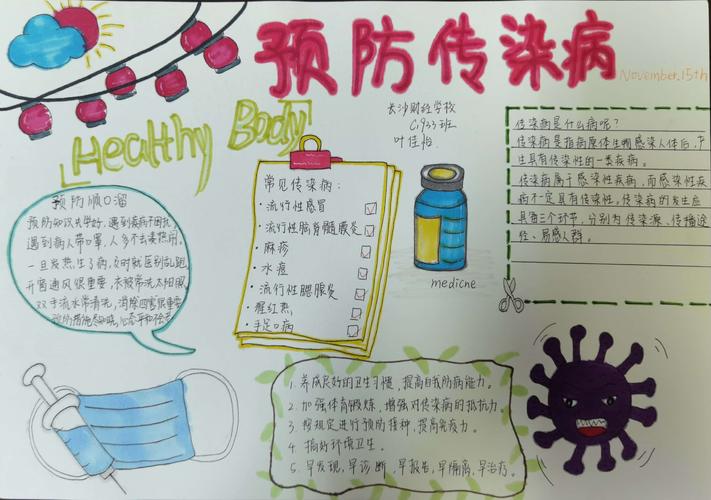 预防传染病
November.15th
Healthy Body
长沙财经学校
C1933班
叶佳怡
预防顺口溜
预防知识大学好,遇到疾病不困扰
遇到病人带口罩,人多不去凑热闹.
一旦发热生了病,及时就医别乱跑
开窗通风很重要,衣被常洗太阳照
双手流水常清洗,消除四害很重要
常见传染病:
·流行性感冒
·流行性脑脊髓膜炎
·麻疹
·水痘
·流行性腮腺炎
·猩红热
·手足口病
medicne
传染病是什么病呢?
传染病是指病原体生物感染人体后,产
生具有传染性的一类疾病。
传染病属于感染性疾病,而感染性疾
病不一定具有传染性,传染病的发生应
具备三个环节,分别为传染源、传播途
径、易感人群。
1.养成良好的卫生习惯,提高自我防病能力。
2.加强体育锻炼,增强对传染病的抵抗力。
3.按规定进行预防接种,提高免疫力。
4.搞好环境卫生。
5.早发现,早诊断,早报告,早隔离,早治疗。